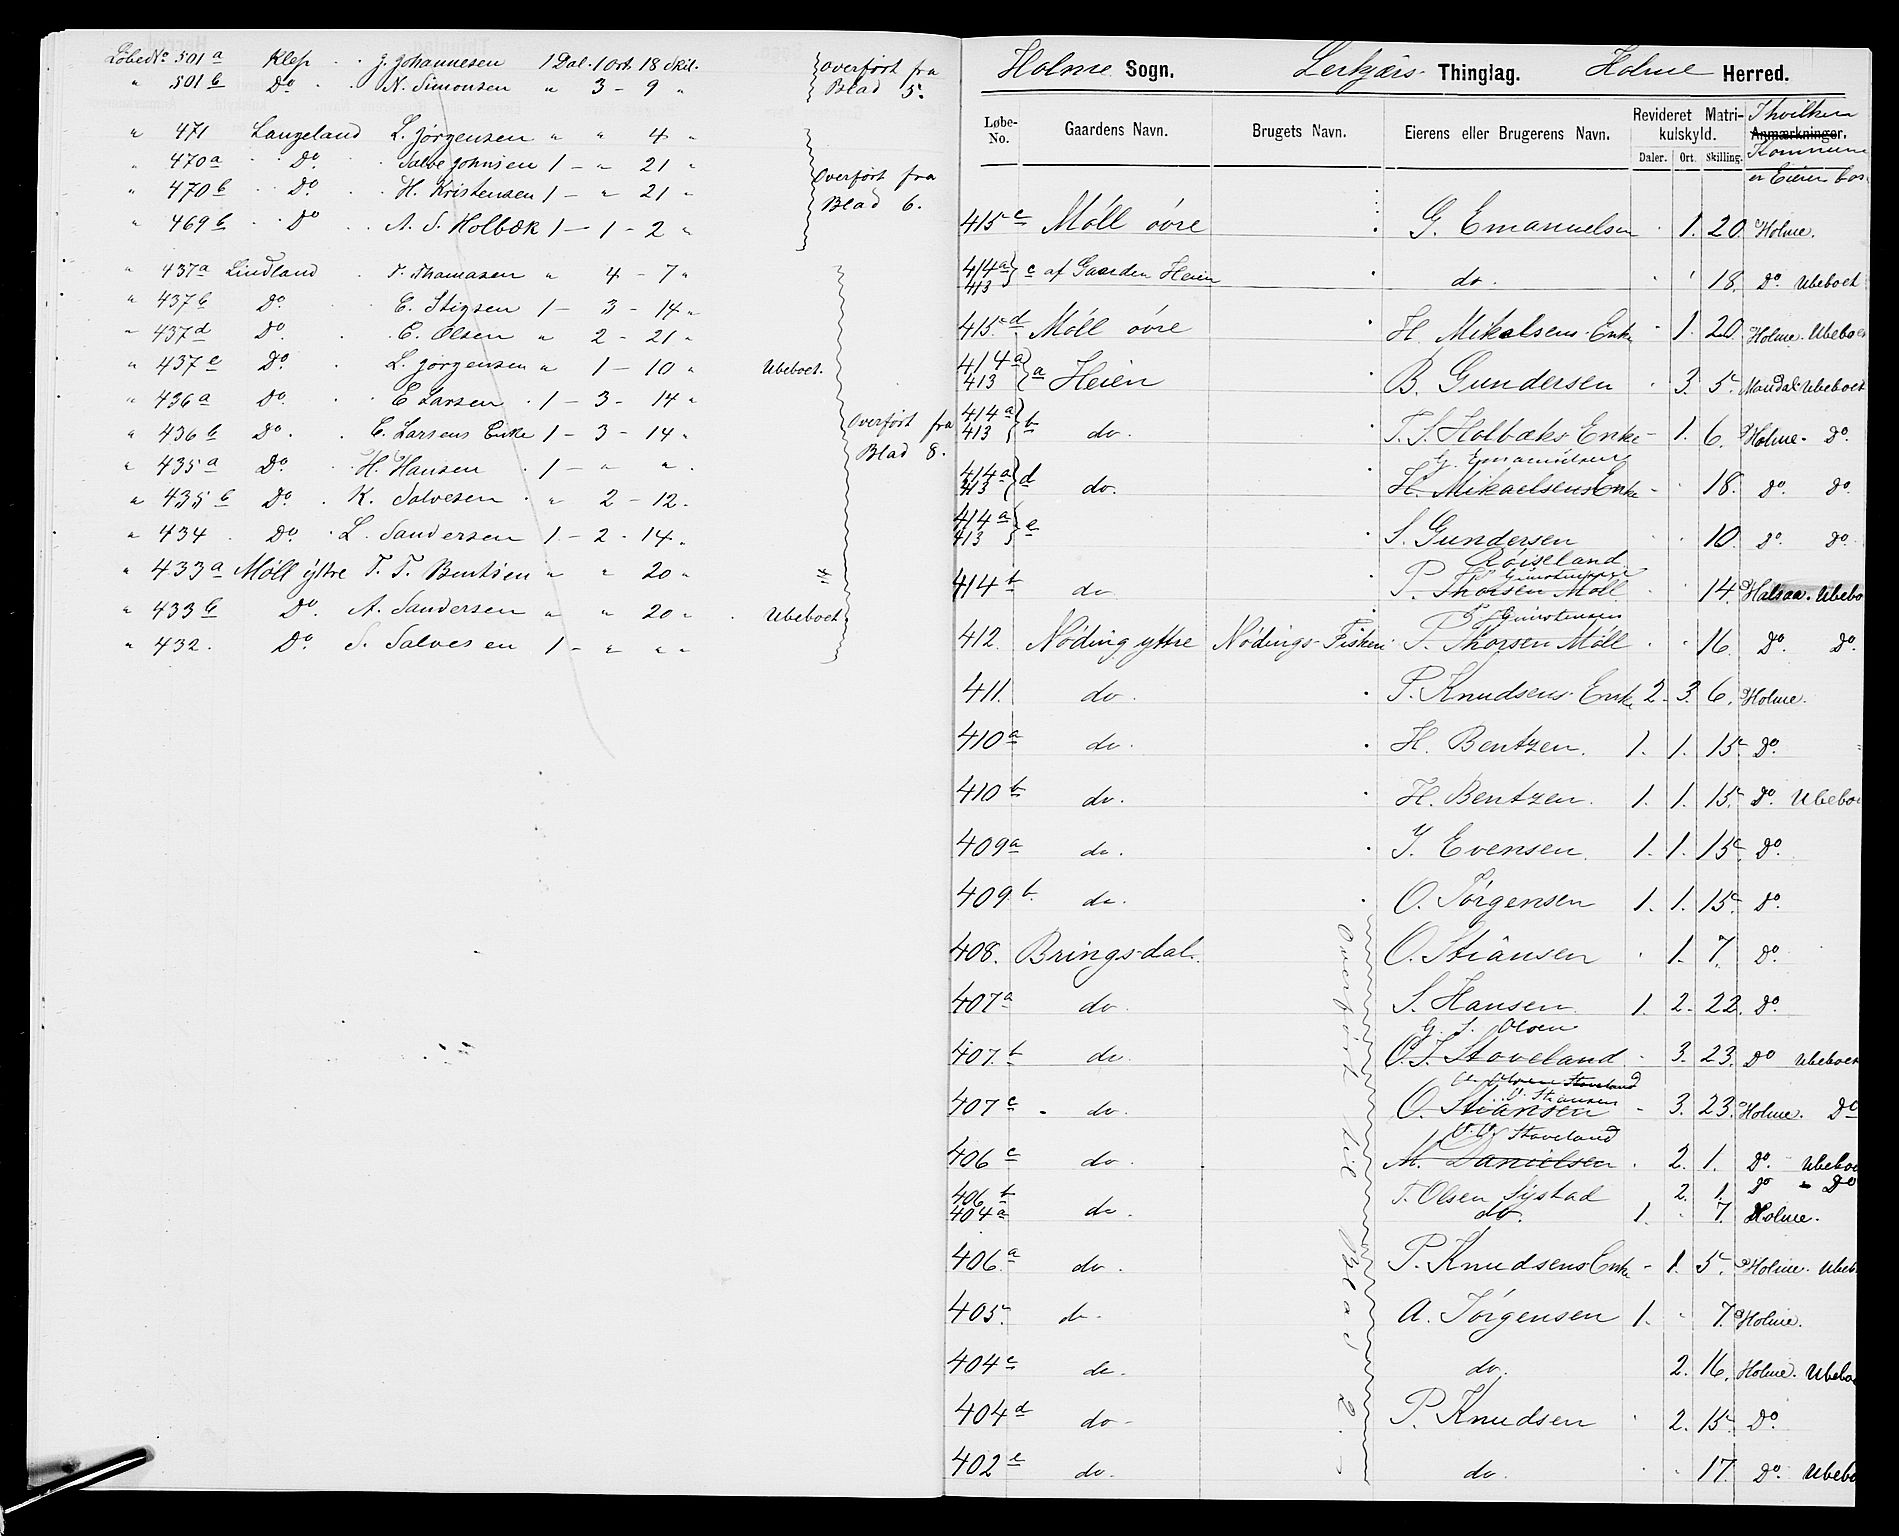 LøbeNo 501a Klep J. Johannesen 1 Dal. 1 Ort. 18 Skil.
" 501b Do N. Simonsen " 3 - 9 "
Overført fra
Blad 5.
" 471 Langeland L. Jørgensen " " 4 "
" 470a Do Salve Johnsen 1 - " 21 "
" 470b Do H. Kristensen 1 - " 21 "
" 469b Do A. S. Holbæk 1 - 1 - 2 "
Overført fra
Blad 6.
" 437a Lindland T. Thomasen " 4 - 7 "
" 437b Do E. Stigsen 1 - 3 - 14 "
" 437d Do E. Olsen " 2 - 21 "
" 437e Do L. Jørgensen " 1 - 10 " Ubeboet.
" 436a Do E Larsen 1 - 3 - 14 "
" 436b Do E. Larsens Enke 1 - 3 - 14 "
" 435a Do H. Hansen 1 - " "
" 435b Do K. Salvesen " 2 - 12.
" 434 Do L. Sandersen 1 - 2 - 14 "
" 433a Møll ÿttre T. T. Bentsen " " 20 "
" 433b Do A. Sandersen " " 20 " Ubeboet
" 432. Do S. Salvesen 1 - " " "
Overført fra
Blad 8.
Holme Sogn. Lerkjærs Thinglag. Holme Herred.
Løbe-No. Gaardens Navn. Brugets Navn. Eierens eller Brugerens Navn. Revideret Matrikulskyld. Daler. Ort. Skilling. Anmærkninger.
I hvilken
Kommune
er Eieren bos
415c Møll øvre G. Emanuelsen 1. 20. Holme.
414a 413 } c af Gaarden Heien do. 18. Do Ubeboet
415d Møll øvre H. Mikalsens Enke 1. 20. Holme. Ubeboe
414a 413 } a Heien B. Gundersen 3. 5. Mandal Ubeboet
414a 413 } b do. T. S. Holbæks Enke 1. 6. Holme. Do.
G. Emanuelsen
414a 413 } d do. H. Mikaelsens Enke 18. Do. Do.
414a 413 } e S. Gundersen 10. Do. Do.
Røiseland
414b do P. Thorsen Møll 14. Halsaa. Ubebo
412. Nøding yttre Nødings-Fisken P. Thorsen Møll 16. Do. Do.
411. do P. Knudsens Enke 2. 3. 6. Holme.
410a do. H. Bentzen. 1. 1. 15. Do.
410b do. H. Bentzen. 1. 1. 15. Do. Ubeboe
409a do. Y. Evensen. 1. 1. 15. Do.
409b. do. O. Jørgensen 1. 1. 15. Do.
408. Bringsdal. O. Stiansen 1. 7. Do.
407a do. S. Hansen 1. 2. 22. Do.
G. S. Olsen
407b do. O. T. Stoveland 3. 23. Do Ubeboet
O. Stiansen
407c do. O. Stiansen 3. 23. Holme. Do
O. O. Stoveland
406c do. M. Danielsen 2. 1. Do. Ubeboe
406b T. Olsen Systad 2. 1. Do - Do
404a do. do. 1. 7. Holme.
406a do. P. Knudsens Enke 1. 5. Holme. Ubeb
405. do. A. Jørgensen 1. 7. Holme.
404c do. do. 2. 16. Holme. Ubeboe
404d do P. Knudsen 2. 15. Do.
402e do. do 17. Do. Ubebo
Overført til Blad 2.